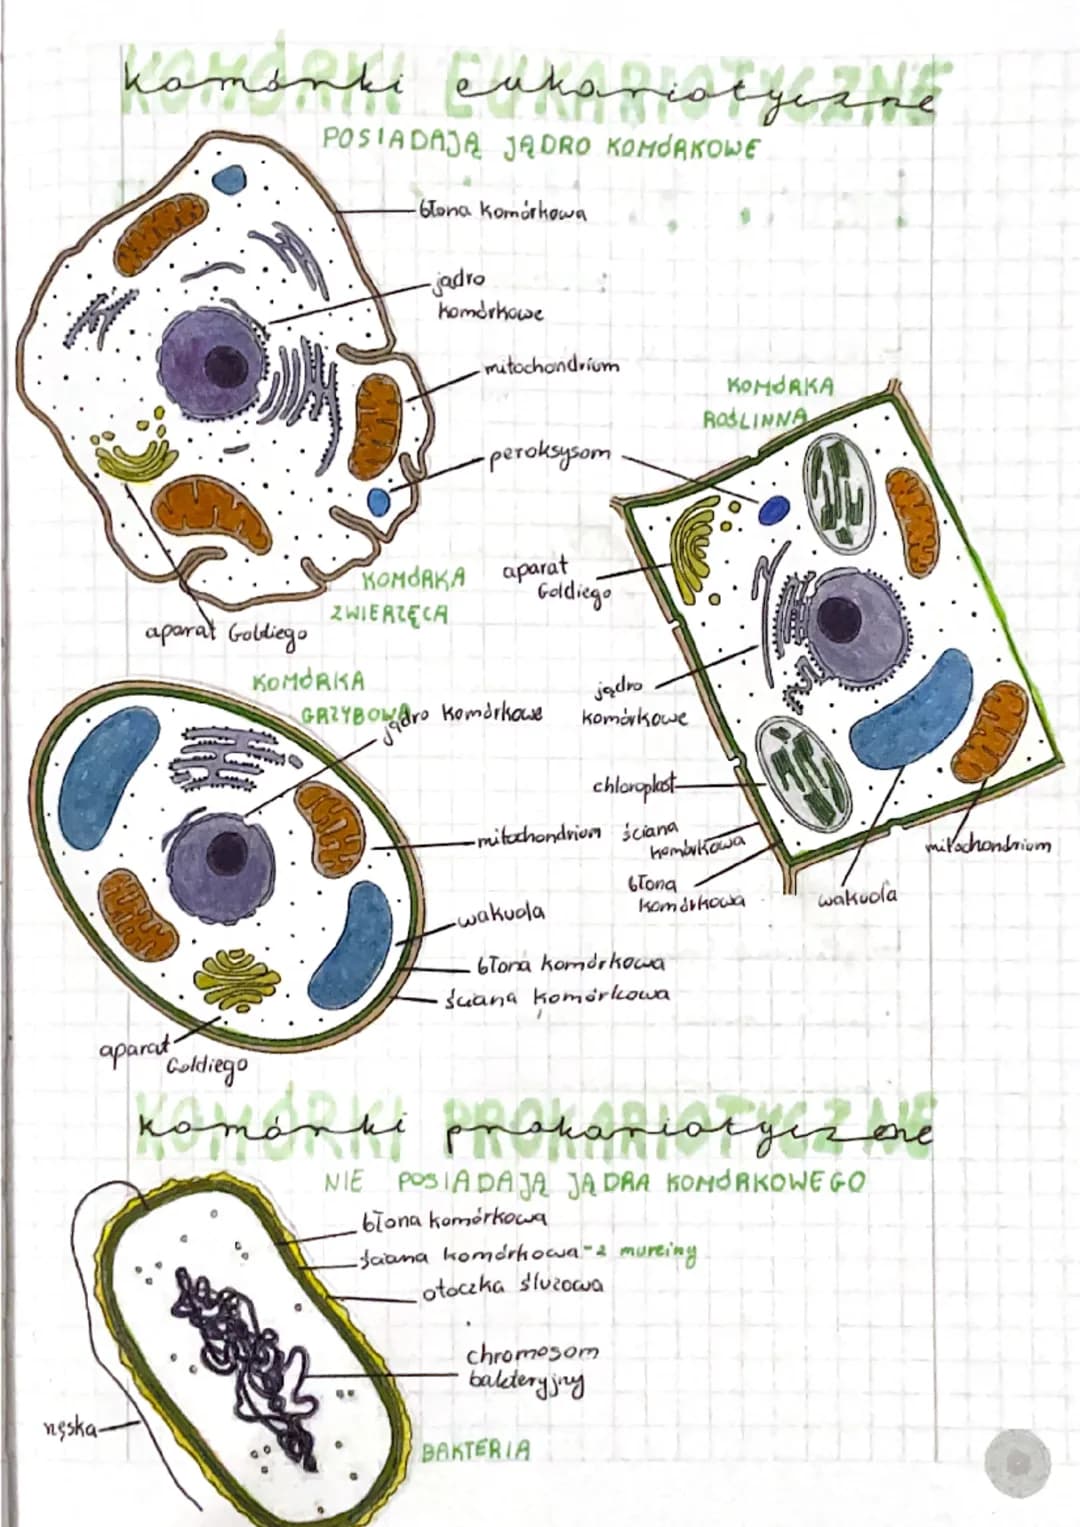 KOMÓRKI EUKARIOTYCZNE
komórki eukariotyczne
POSIADAJĄ JĄDRO KOMÓRKOWE
błona komórkowa
jądro
komórkowe
mitochondrium
KOMÓRKA
ROŚLINNA
peroksysom
aparat
Goldiego
KOMÓRKA
ZWIERZĘCA
aparat Goldiego
KOMÓRKA
GRZYBOWA
jądro komórkowe
jądro
komórkowe
chloroplast
mitochondrium
ściana
komórkowa
mitochondrium
błona
komórkowa
wakuola
wakuola
błona komórkowa
ściana komórkowa
aparat
Goldiego
KOMÓRKI PROKARIOTYCZNE
komórki prokariotyczne
NIE POSIADAJĄ JĄDRA KOMÓRKOWEGO
błona komórkowa
ściana komórkowa - z mureiny
otoczka śluzowa
chromosom
bakteryjny
rzęska
BAKTERIA